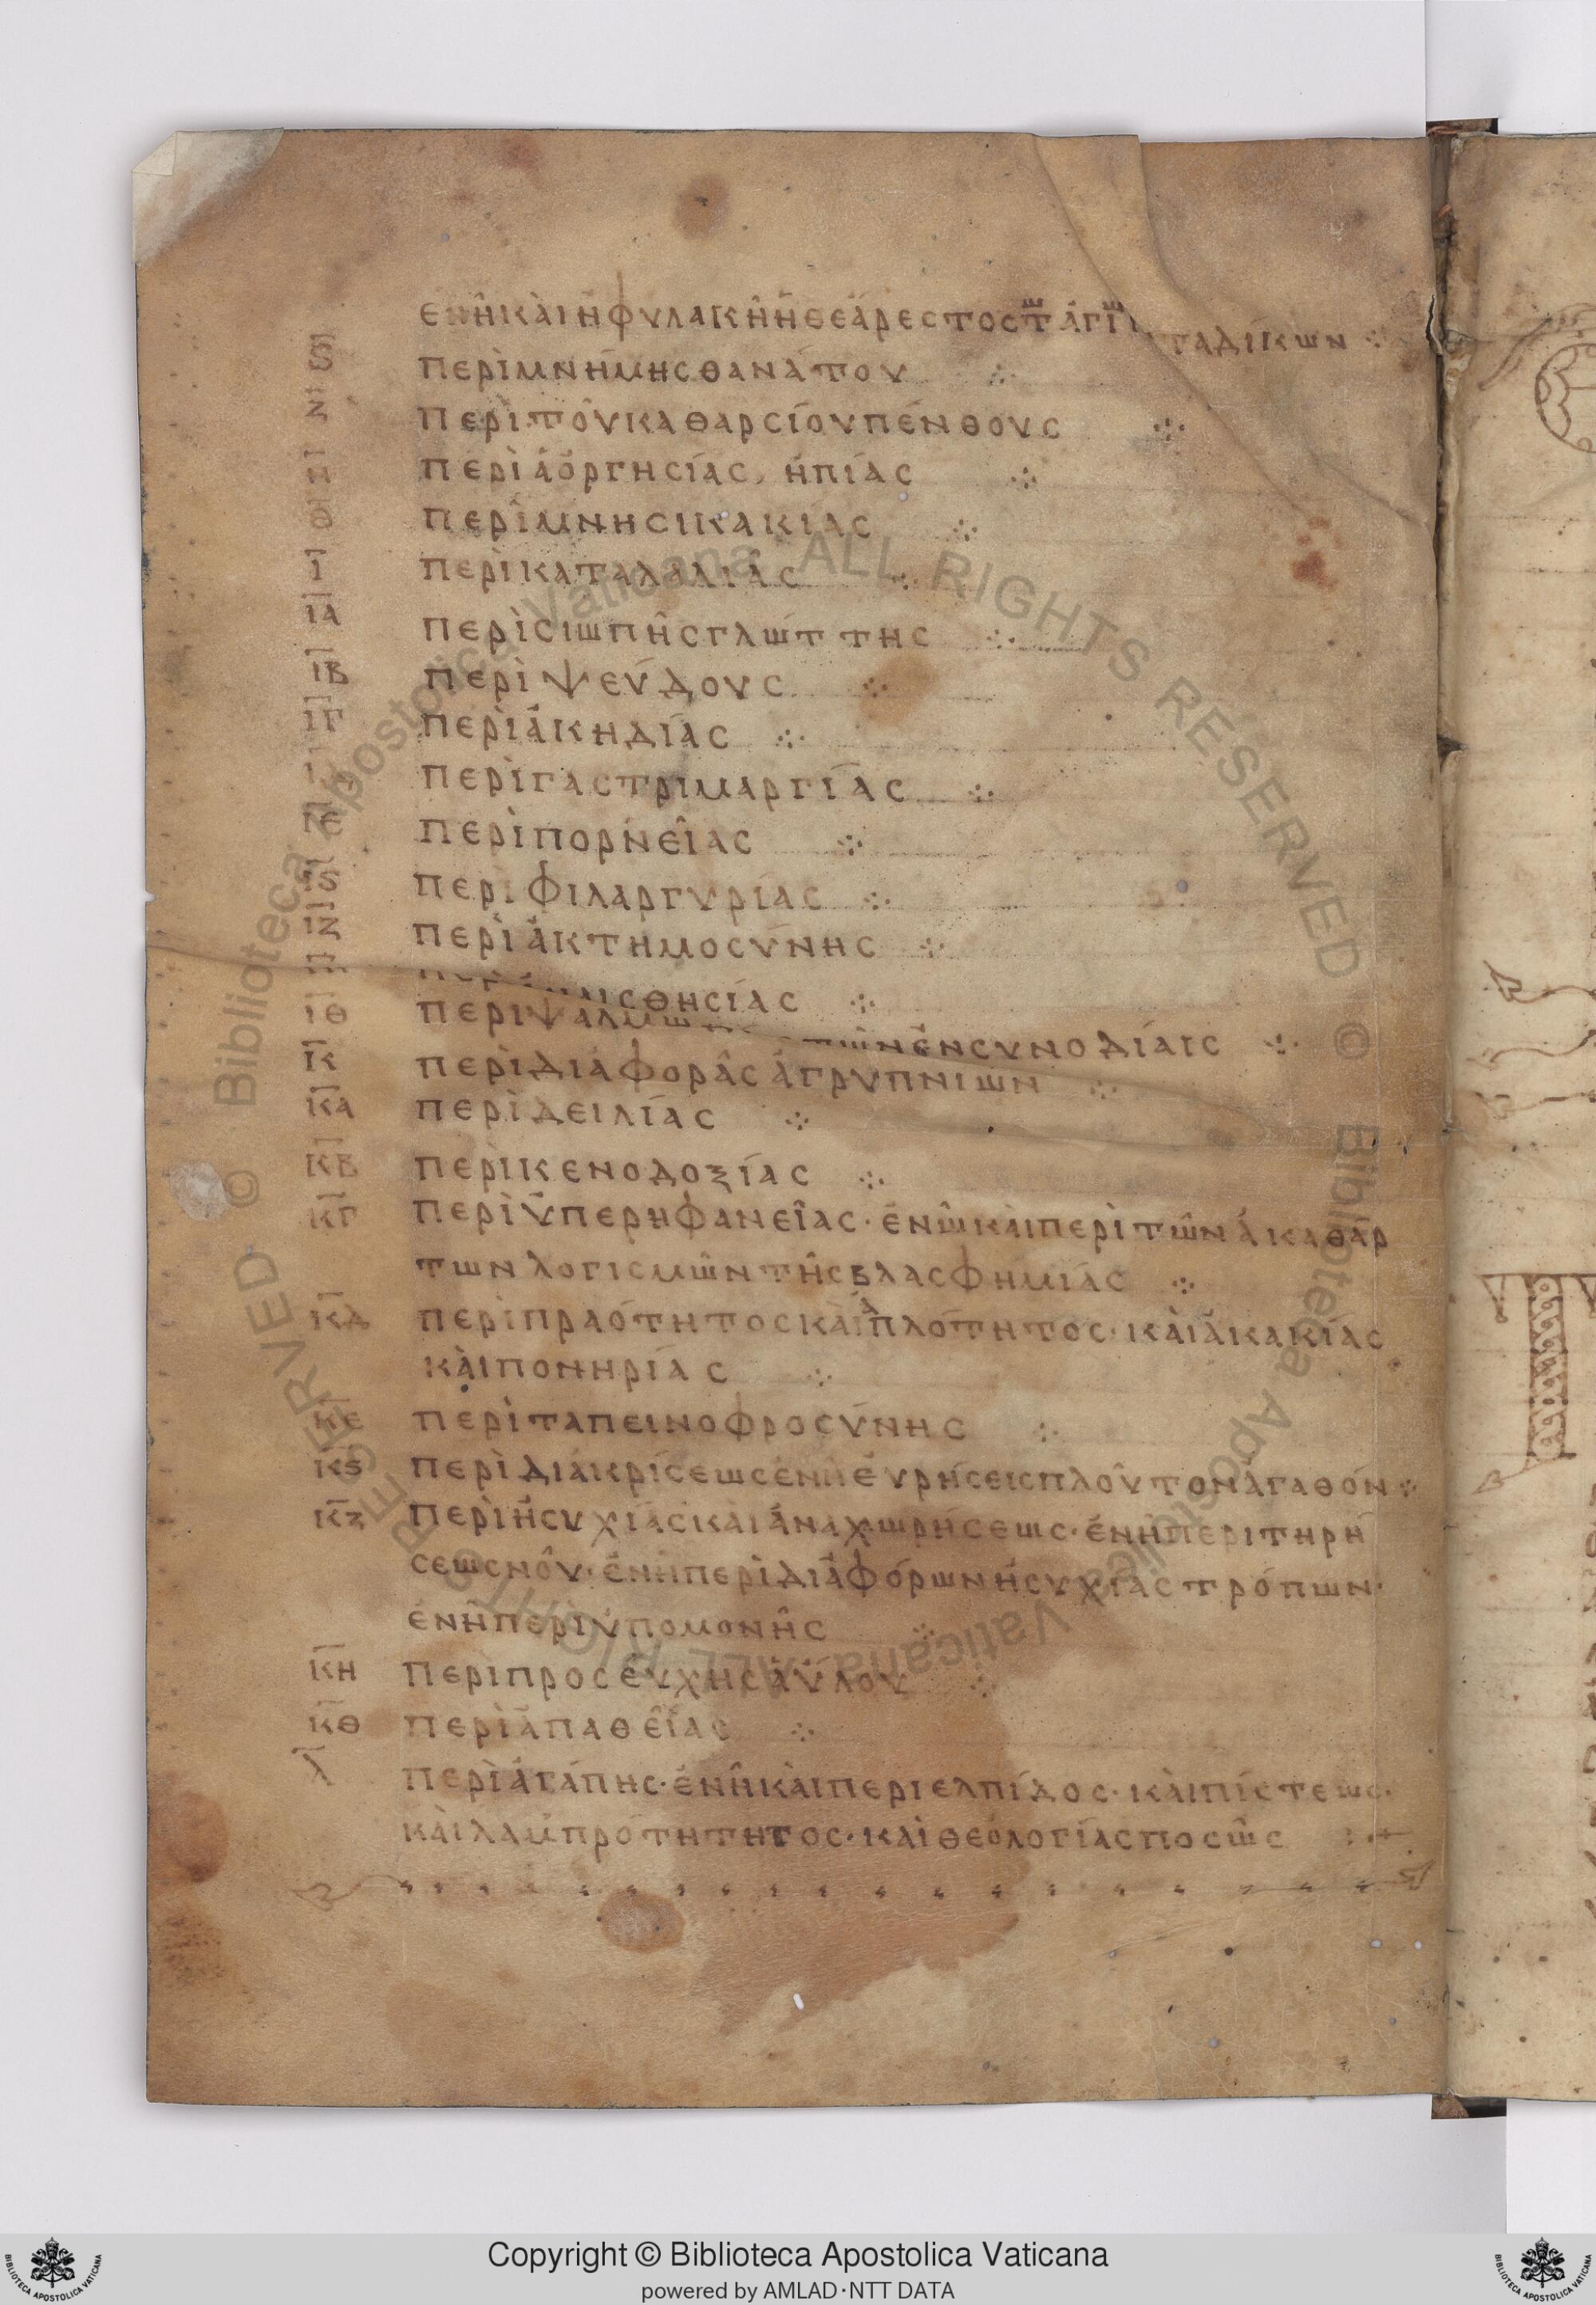 ἐν ἧ καὶ ἡ φυλακὴ ἡ θεάρεστος τῶ ἁγίω καταδίκων
Ϛ περὶ μνήμης θανάτου
Ζ περὶ τοῦ καθαρσίου πένθους
Η περὶ ἀοργησίας, ἠπίας
Θ περὶ μνησικακίας
Ι περὶ καταλαλιᾶς
ΙΑ περὶ σιωπῆς γλώττης
ΙΒ περὶ ψεύδους
ΙΓ περὶ ἀκηδίας
περὶ γαστριμαργίας
ΙΕ περὶ πορνείας
ΙϚ περὶ φιλαργυρίας
ΙΖ περὶ ἀκτημοσύνης
ΙΗ περὶ ἀναισθησίας
ΙΘ περὶ ψαλμω τῶν ἐν συνοδίαις
Κ περὶ διαφορᾶς ἀγρυπνιων
ΚΑ περὶ δειλίας
ΚΒ περὶ κενοδοξίας
ΚΓ περὶ ὑπερηφανείας· ἐν ῶ καὶ περὶ τῶν ἀκαθάρ
των λογισμῶν τῆς βλασφημίας
ΚΔ περὶ πραότητος καὶ ἁπλότητος· καὶ ἀκακίας
καὶ πονηρίας
ΚΕ περὶ ταπεινοφροσύνης
ΚϚ περὶ διακρίσεως ἐν ἧ εὑρήσεις πλοῦτον ἀγαθόν
ΚΖ περὶ ἡσυχίας καὶ ἀναχωρήσεως· ἐν ἧ περι τηρή
σεως νοῦ· ἐν ἧ περὶ διαφόρων ἡσυχίας τρόπων·
ἐν ἧ περὶ ὑπομονῆς
ΚΗ περὶ προσευχῆς ἀύλου
ΚΘ περὶ ἀπαθείας
Λ περὶ ἀγάπης· ἐν ἧ καὶ περι ελπίδος· καὶ πίστεως·
καὶ λαμπρότητητος· καὶ θεολογίας ποσῶς
Copyright © Biblioteca Apostolica Vaticana
powered by AMLAD·NTT DATA